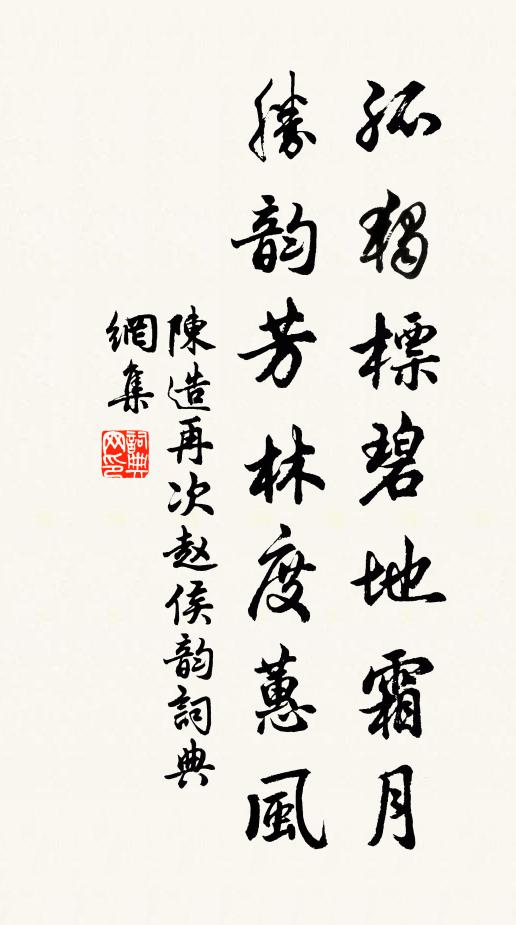 孤獨標碧地霜月
勝韵芳林度蕙風
陳造再次赵侯韵詞典
網集
詞典網印